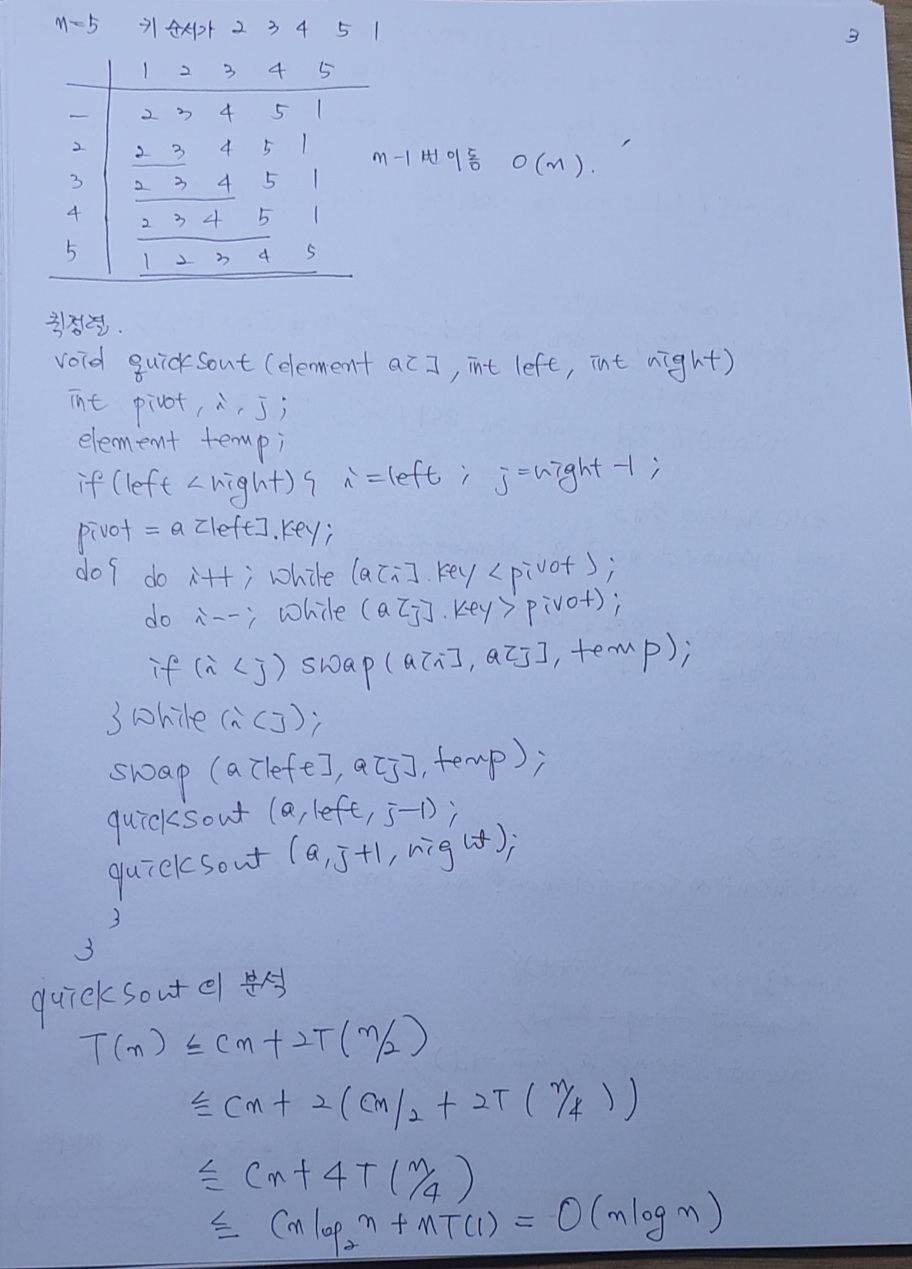 n=5 키 순서가 2 3 4 5 1
3
1 2 3 4 5
— 2 3 4 5 1
2 2 3 4 5 1
3 2 3 4 5 1
4 2 3 4 5 1
5 1 2 3 4 5
n-1 번 이동 O(n).
퀵정렬.
void quicksort (element a[], int left, int right)
int pivot, i, j;
element temp;
if (left < right) { i=left ; j=right -1 ;
pivot = a[left].key;
do { do i++ ; while (a[i].key < pivot);
do i--; while (a[j].key > pivot);
if (i < j) swap (a[i], a[j], temp);
} while (i < j);
swap (a[left], a[j], temp);
quicksort (a, left, j-1);
quicksort (a, j+1, right);
}
}
quicksort의 분석
T(n) ≤ Cn + 2T(n/2)
≤ Cn + 2(Cn/2 + 2T(n/4))
≤ Cn + 4T(n/4)
≤ Cn log₂n + nT(1) = O(n log n)